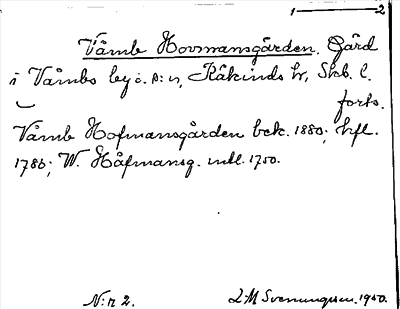 1 — 2
Våmb Hovmansgården. Gård
i Våmbs by o. s:n, Kåkinds hr, Skb. l.
forts.
Våmb Hofmansgården bek. 1880; hfl.
1786; W. Håfmansg. mtl. 1750.
N:r 2.
L-M Svenungsson. 1950.